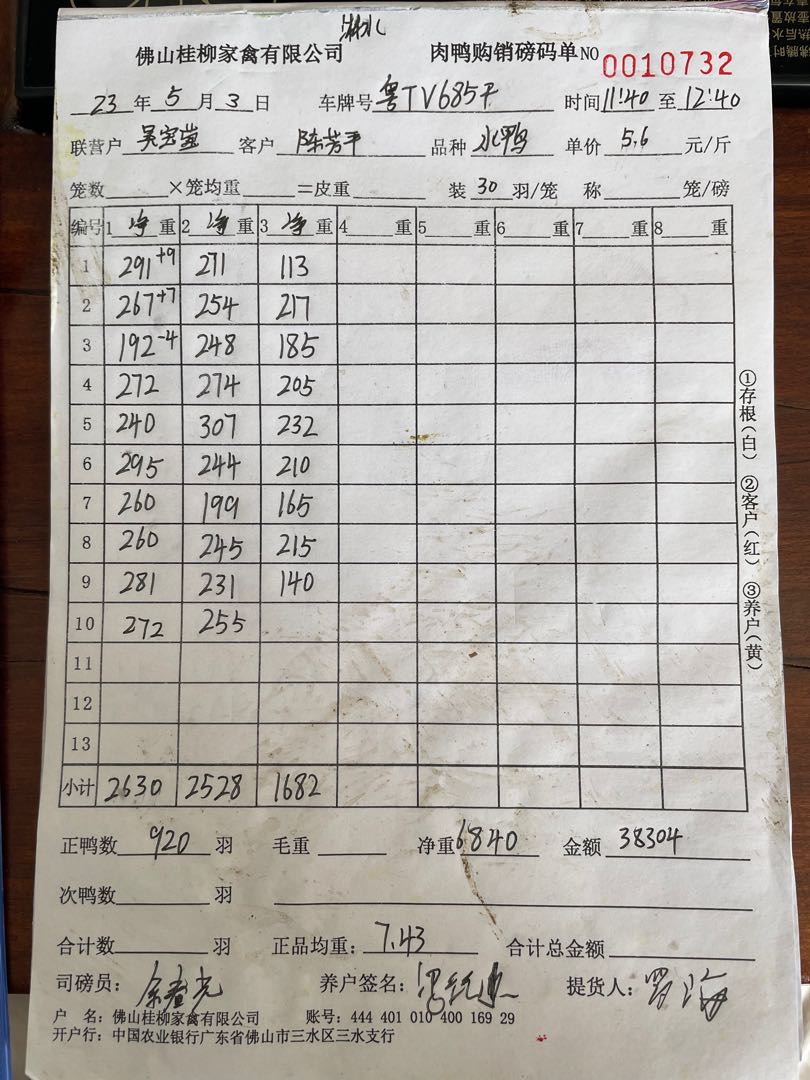 淋水
佛山桂柳家禽有限公司 肉鸭购销磅码单 NO 0010732
23 年 5 月 3 日 车牌号 粤TV685F 时间 11:40 至 12:40
联营户 吴宏莹 客户 陈芳平 品种 水鸭 单价 5.6 元/斤
笼数 ×笼均重 =皮重 装 30 羽/笼 称 笼/磅
编号 1 净 重 2 净 重 3 净 重 4 重 5 重 6 重 7 重 8 重
1 291+9 271 113
2 267+7 254 217
3 192-4 248 185
4 272 274 205
5 240 307 232
6 295 244 210
7 260 199 165
8 260 245 215
9 281 231 140
10 272 255
11
12
13
小计 2630 2528 1682
正鸭数 920 羽 毛重 净重 6840 金额 38304
次鸭数 羽
合计数 羽 正品均重: 7.43 合计总金额
司磅员: 养户签名: 提货人:
户 名: 佛山桂柳家禽有限公司 账号: 444 401 010 400 169 29
开户行: 中国农业银行广东省佛山市三水区三水支行
①存根(白) ②客户(红) ③养户(黄)